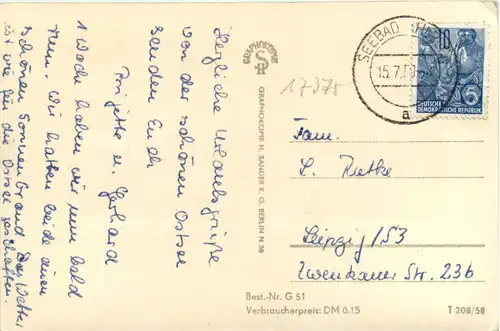 Herzliche Urlaubsgrüße
von der schönen Ostsee
senden Euch
Brigitte u. Gerhard
1 Woche haben wir nun bald
rum. Wir hatten beide einen
schönen Sonnenbrand. Das Wetter
ist wie für die Ostsee geschaffen.
GRAPHOKOPIE
GRAPHOKOPIE H. SANDER K. G. BERLIN N 58
17375
SEEBAD
15.7.
a
10
5
DEUTSCHE
DEMOKRATISCHE REPUBLIK
Fam.
L. Rietke
Leipzig / S3
Zwenkauer Str. 23b
Best.-Nr. G 51
Verbraucherpreis: DM 0.15
T 208/58